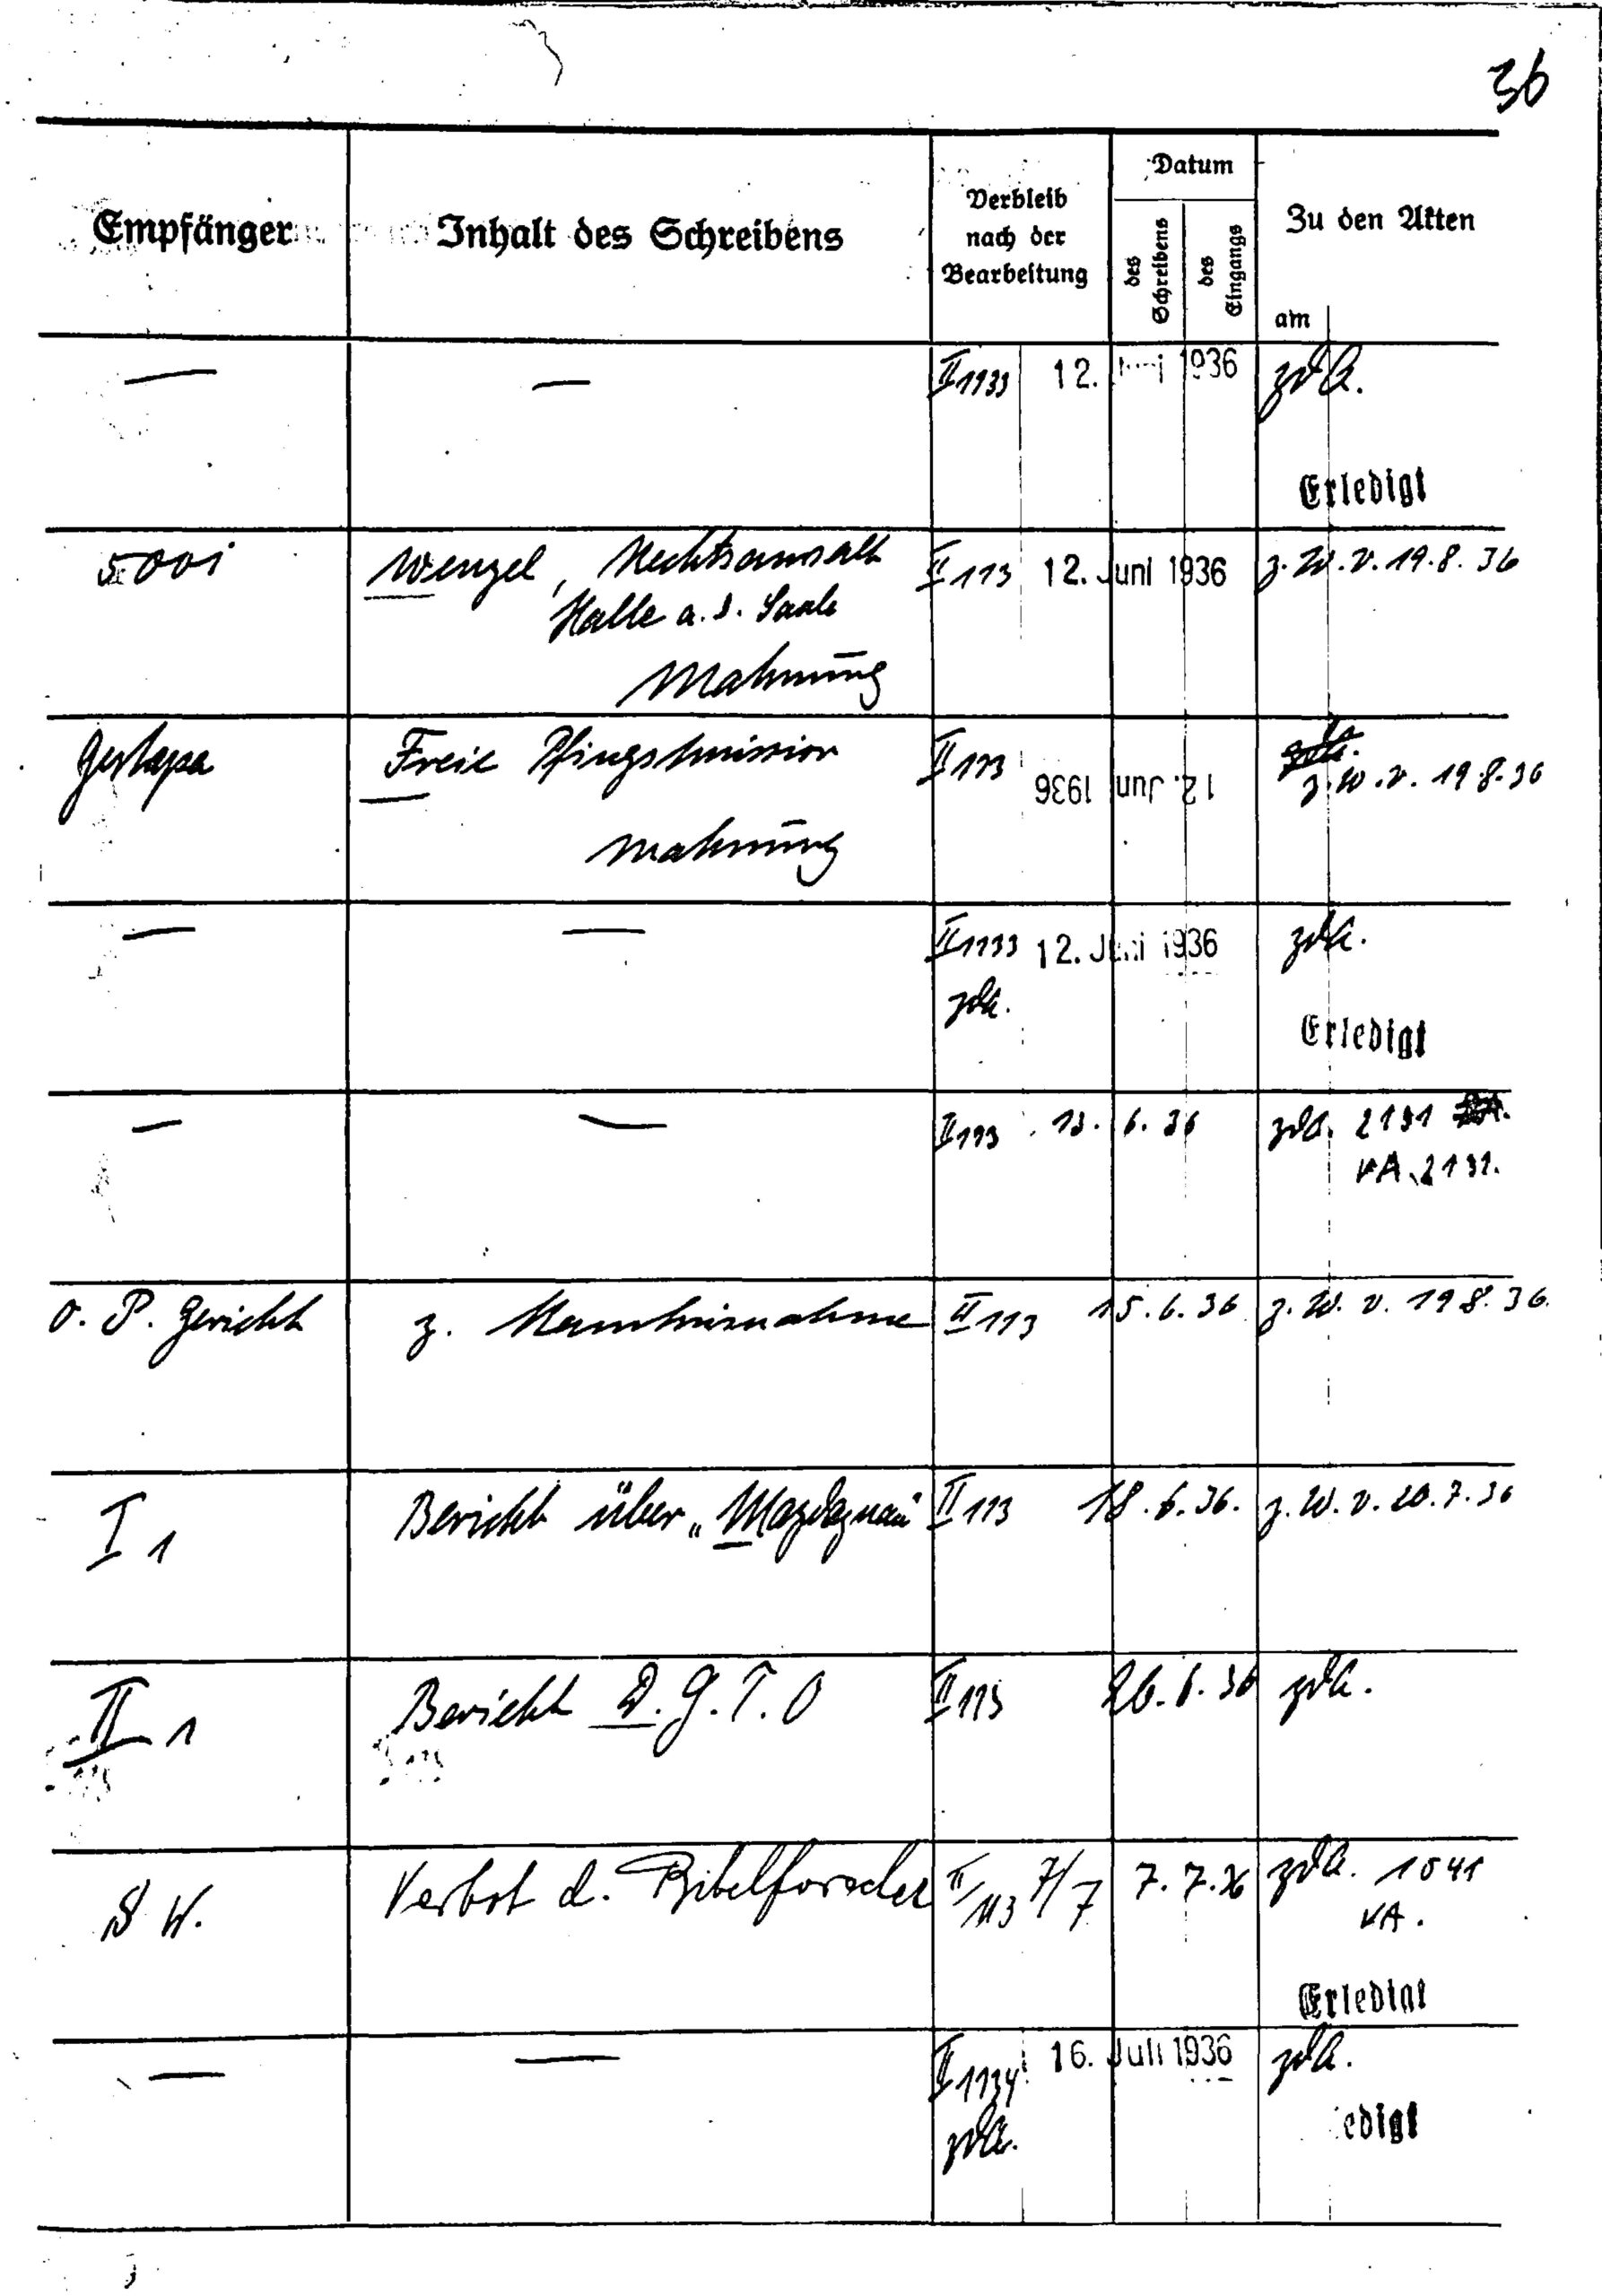 36
Empfänger
Inhalt des Schreibens
Verbleib
nach der
Bearbeitung
Datum
des
Schreibens
des
Eingangs
Zu den Akten
am
— — II 1133 12. 1936 zdA.
Erledigt
Wenzel, Rechtsanwalt II 113 12. Juni 1936 z. W. v. 19.8.36
Halle a. d. Saale
Mahnung
Gestapa Freie Pfingstmission II 113 12. Jun 1936 zdA.
z. W. v. 19.8.36
Mahnung
— — II 1133 12. Juni 1936 zdA.
zdA.
Erledigt
— — II 113 13. 6. 36 zdA. 2131
VA. 2131.
O. P. Gericht z. Kenntnisnahme II 113 15.6.36 z. W. v. 19.8.36.
I 1 Bericht über „Mazdaznan" II 113 18.6.36. z. W. v. 20.7.36
II 1 Bericht D. G. T. O II 113 26.6.36 zdA.
S W. Verbot d. Bibelforscher II/113 7/7 7.7.36 zdA. 1541
VA.
Erledigt
— — II 1134 16. Juli 1936 zdA.
zdA.
edigt